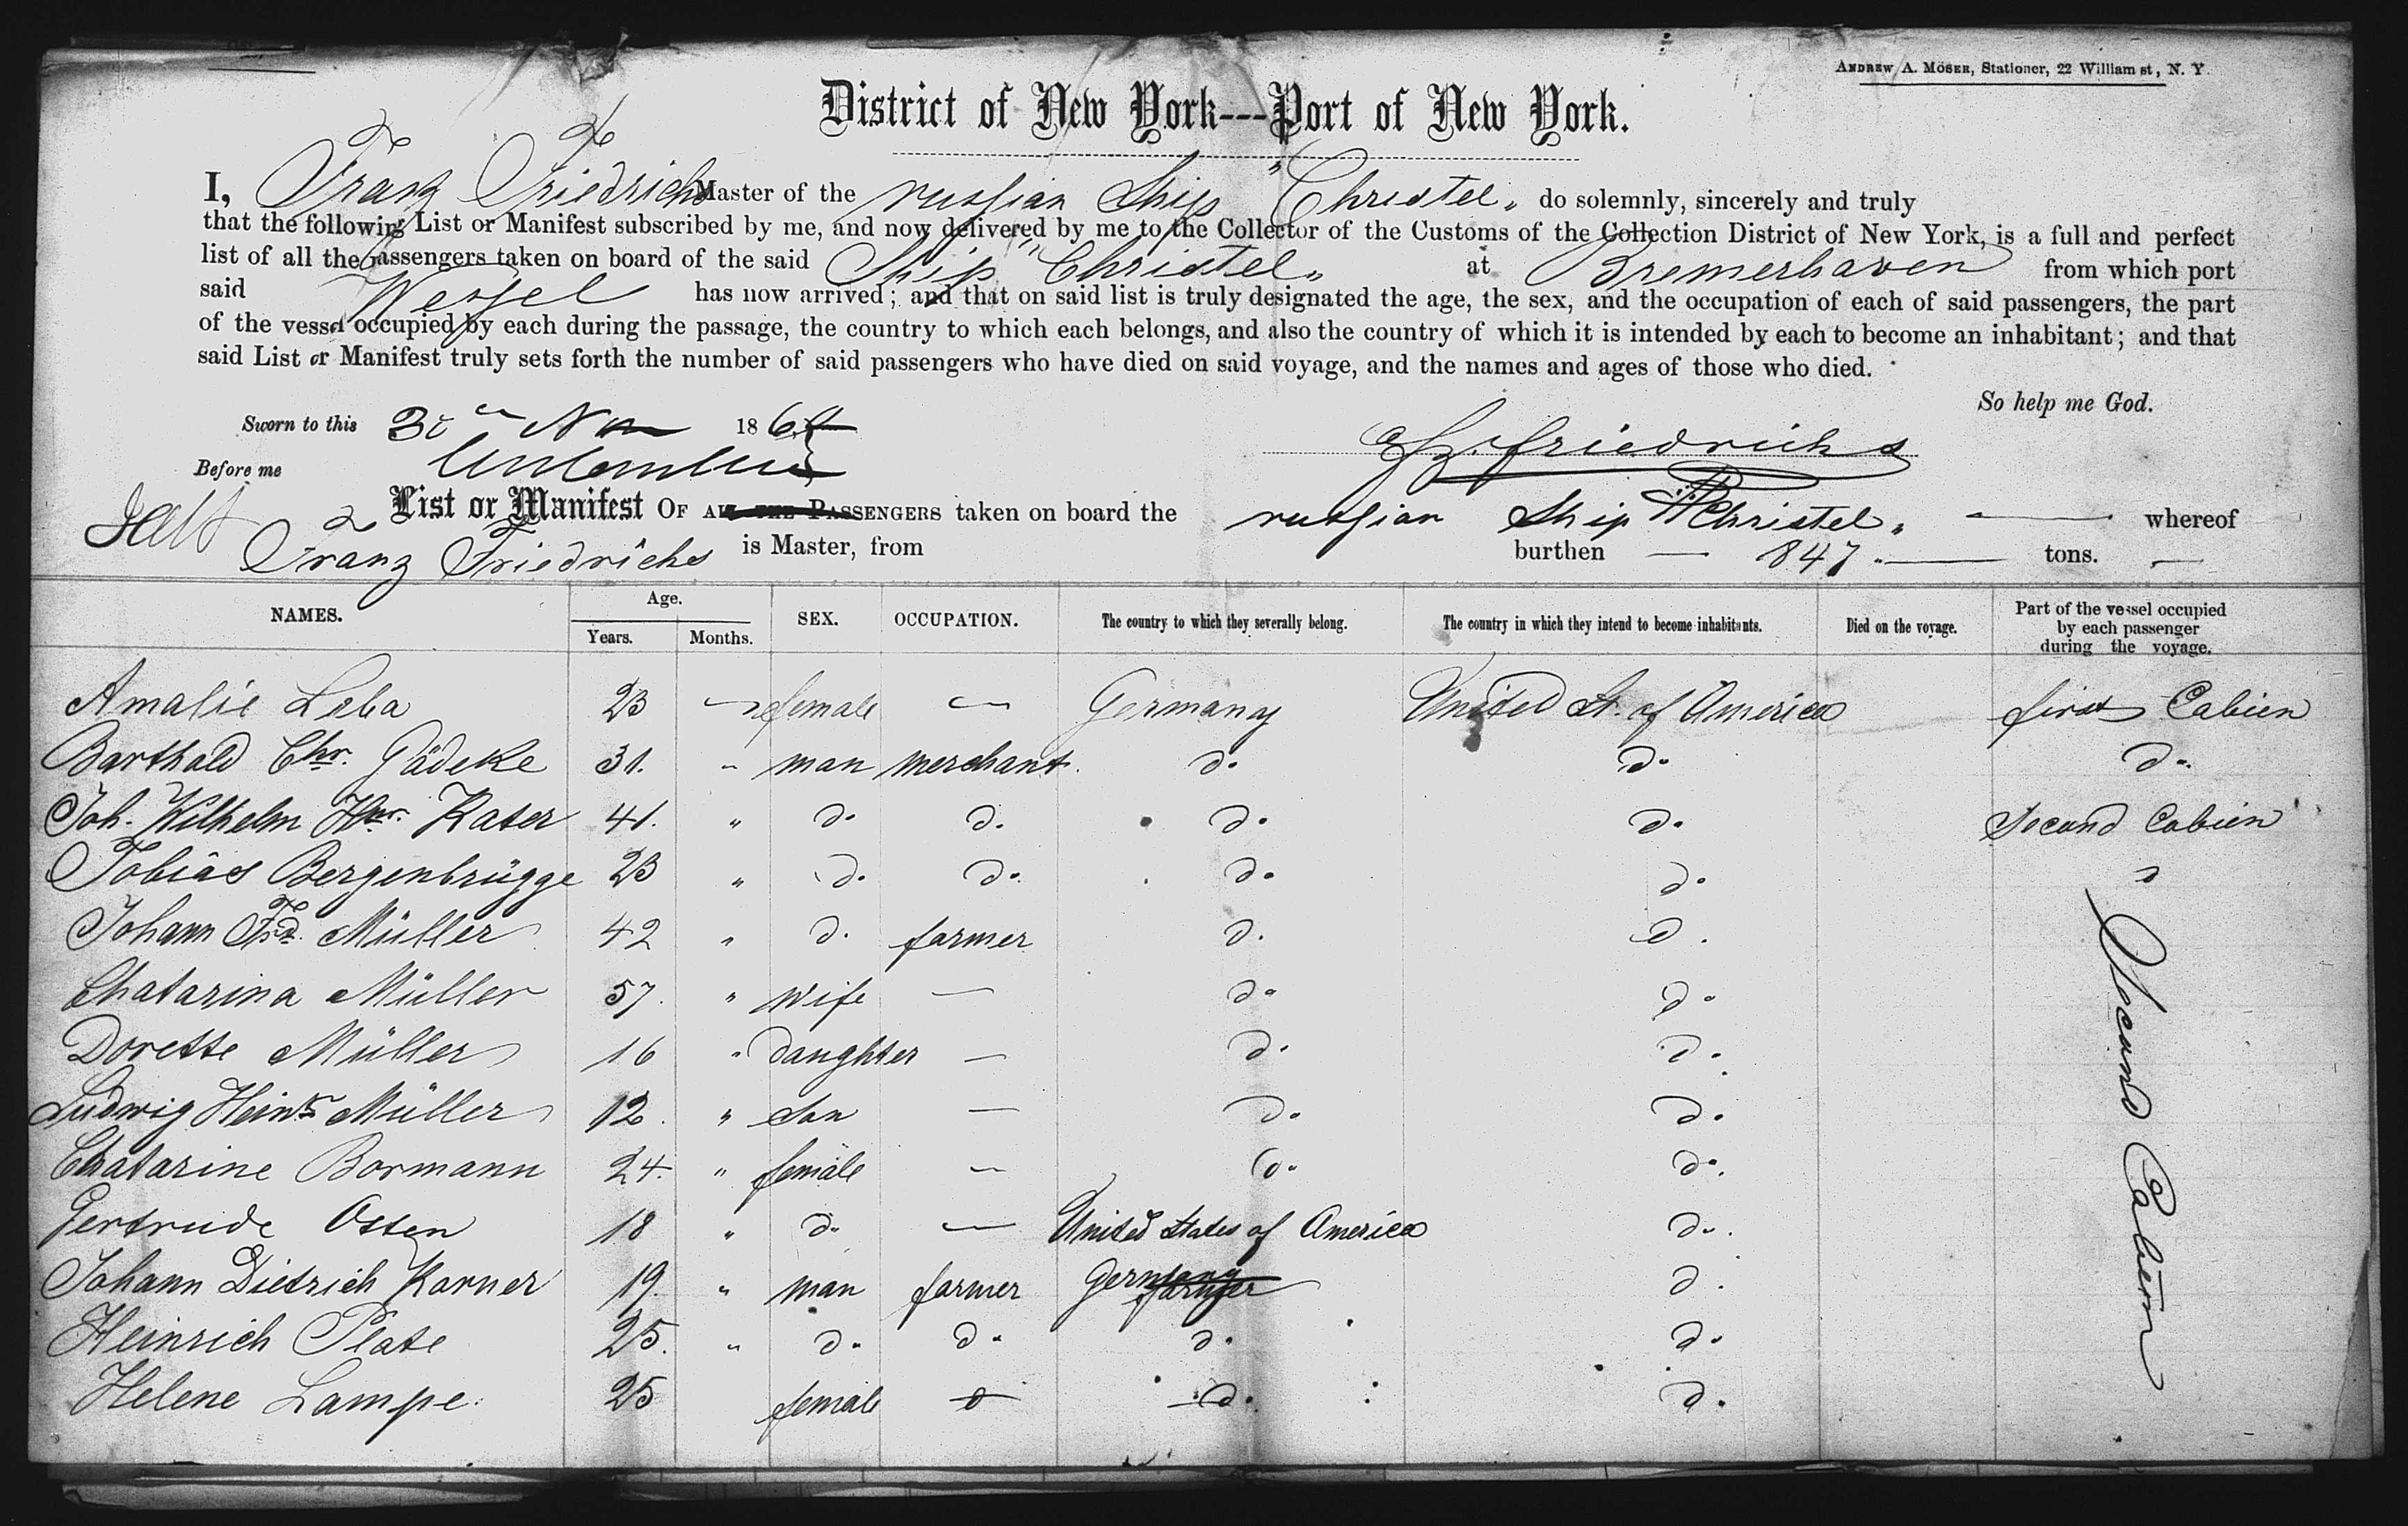 ANDREW A. MÖSER, Stationer, 22 William st, N. Y.
District of New York---Port of New York.
I, Franz Friedrichs Master of the russian Ship "Christel" do solemnly, sincerely and truly
that the following List or Manifest subscribed by me, and now delivered by me to the Collector of the Customs of the Collection District of New York, is a full and perfect
list of all the passengers taken on board of the said Ship "Christel" at Bremerhaven from which port
said Wessel has now arrived; and that on said list is truly designated the age, the sex, and the occupation of each of said passengers, the part
of the vessel occupied by each during the passage, the country to which each belongs, and also the country of which it is intended by each to become an inhabitant; and that
said List or Manifest truly sets forth the number of said passengers who have died on said voyage, and the names and ages of those who died.
So help me God.
Sworn to this 30 Nov 186
Fz. Friedrichs
Before me
List or Manifest OF ALL THE PASSENGERS taken on board the russian Ship "Christel" whereof
Franz Friedrichs is Master, from burthen — 847 — tons. —
NAMES. Age. Years. Months. SEX. OCCUPATION. The country to which they severally belong. The country in which they intend to become inhabitants. Died on the voyage. Part of the vessel occupied by each passenger during the voyage.
Amalie Leba 23 — female — Germany United St. of America first Cabien
Barthold Chr. Gädeke 31. " man merchant. do do do
Joh. Wilhelm Hnr. Kater 41. " do do. do do. Second Cabien
Tobias Bergenbrügge 23 " do do. do do "
Johann Frd. Müller 42 " do. farmer do. do.
Chatarina Müller 57. " wife — do do
Dorette Müller 16 " daughter — do do.
Ludwig Heinr Müller 12. " son — do. do.
Chatarine Bormann 24. " female — do. do.
Gertrude Osten 18 " do — United States of America do.
Johann Dietrich Korner 19. " man farmer Germany farmer do.
Heinrich Plate 25. " do. do. do. do.
Helene Lampe. 25 female do do. do.
Second Cabien